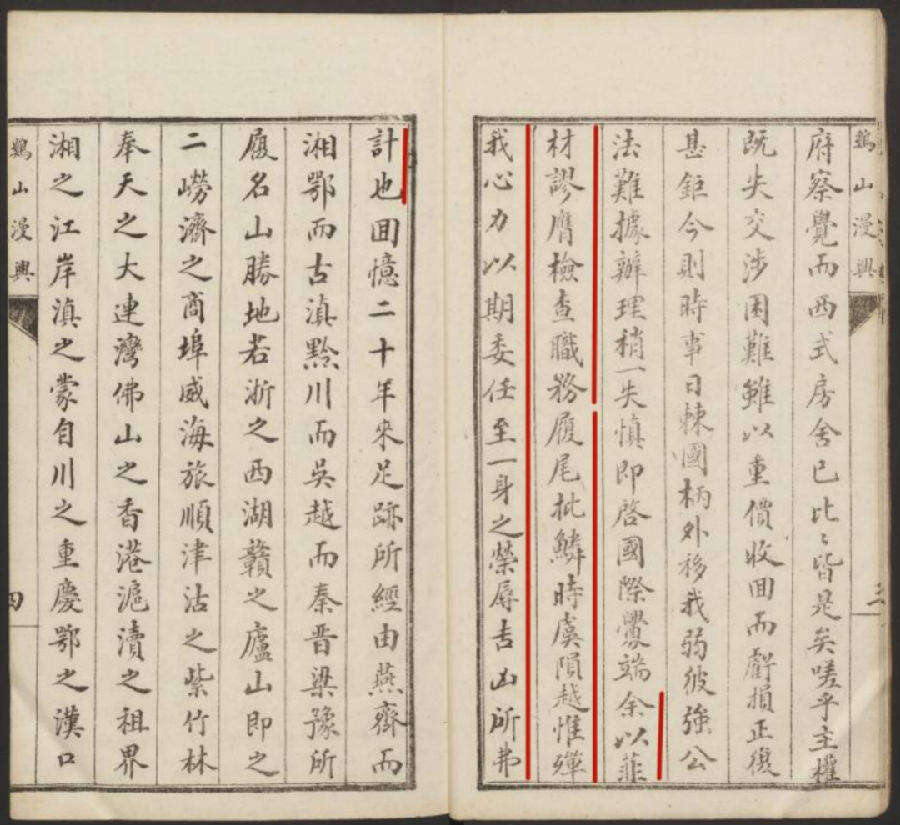 鷄山漫興
三
府察覺而西式房舍已比〻皆是矣嗟乎主權
既失交涉困難雖以重價收回而虧損正復
甚鉅今則時事日棘國柄外移我弱彼強公
法難據辦理稍一失慎即啓國際釁端余以菲
材謬膺檢查職務履尾批鱗時虞隕越惟殫
我心力以期委任至一身之榮辱吉凶所弗
計也囬憶二十年來足跡所經由燕齊而
湘鄂而古滇黔川而吳越而秦晋梁豫所
履名山勝地若浙之西湖贛之廬山即之
二嶗濟之商埠威海旅順津沽之紫竹林
奉天之大連灣佛山之香港滬瀆之租界
湘之江岸滇之蒙自川之重慶鄂之漢口
鷄山漫興
四